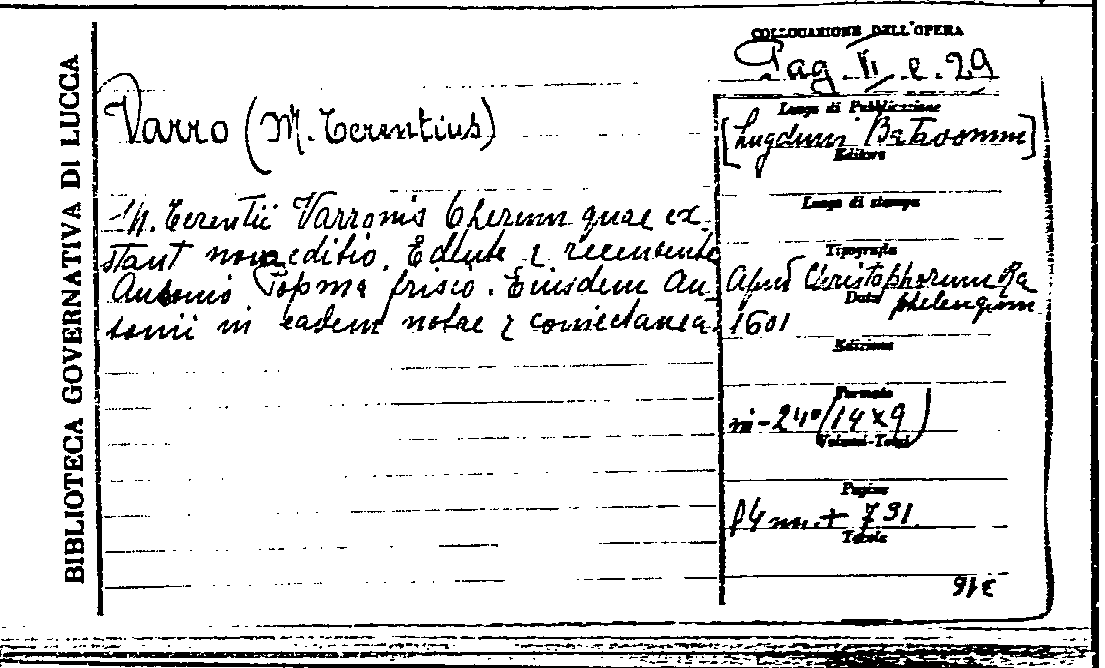 BIBLIOTECA GOVERNATIVA DI LUCCA
COLLOCAZIONE DELL'OPERA
Pag. VI. e. 29
Varro (M. Terentius)
M. Terentii Varronis Operum quae ex-
stant nova editio. Edente & recensente
Ausonio Popma frisio. Eiusdem Au-
sonii in eadem notae & coniectanea.
Luogo di Pubblicazione
[Lugduni Batavorum]
Editore
Luogo di stampa
Tipografia
Apud Christophorum Ra
phelengium
Data
1601
Edizione
Formato
in-24° (14 x 9)
Volumi-Tomi
Pagine
f 4 nn. + 791.
Tavole